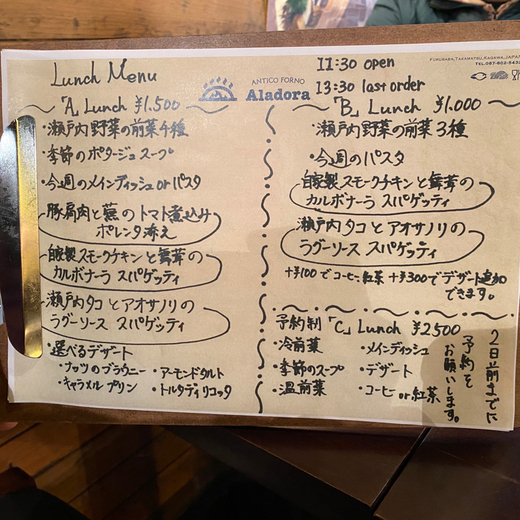 Lunch Menu
ANTICO FORNO
Aladora
11:30 open
13:30 last order
FURUBABA, TAKAMATSU, KAGAWA, JAPAN
「A」Lunch ¥1.500
・瀬戸内野菜の前菜4種
・季節のポタージュスープ
・今週のメインディッシュorパスタ
豚肩肉と蕪のトマト煮込み
ポレンタ添え
自家製スモークチキンと舞茸の
カルボナーラ スパゲッティ
瀬戸内タコとアオサノリの
ラグーソース スパゲッティ
・選べるデザート
・ナッツのブラウニー
・アーモンドタルト
・キャラメルプリン
・トルタディリコッタ
「B」Lunch ¥1.000
・瀬戸内野菜の前菜3種
・今週のパスタ
自家製スモークチキンと舞茸の
カルボナーラ スパゲッティ
瀬戸内タコとアオサノリの
ラグーソース スパゲッティ
+¥100でコーヒー、紅茶 +¥300でデザート追加
できます。
予約制「C」Lunch ¥2500
・冷前菜
・季節のスープ
・温前菜
・メインディッシュ
・デザート
・コーヒーor紅茶
2日前までに
予約を
お願いします。